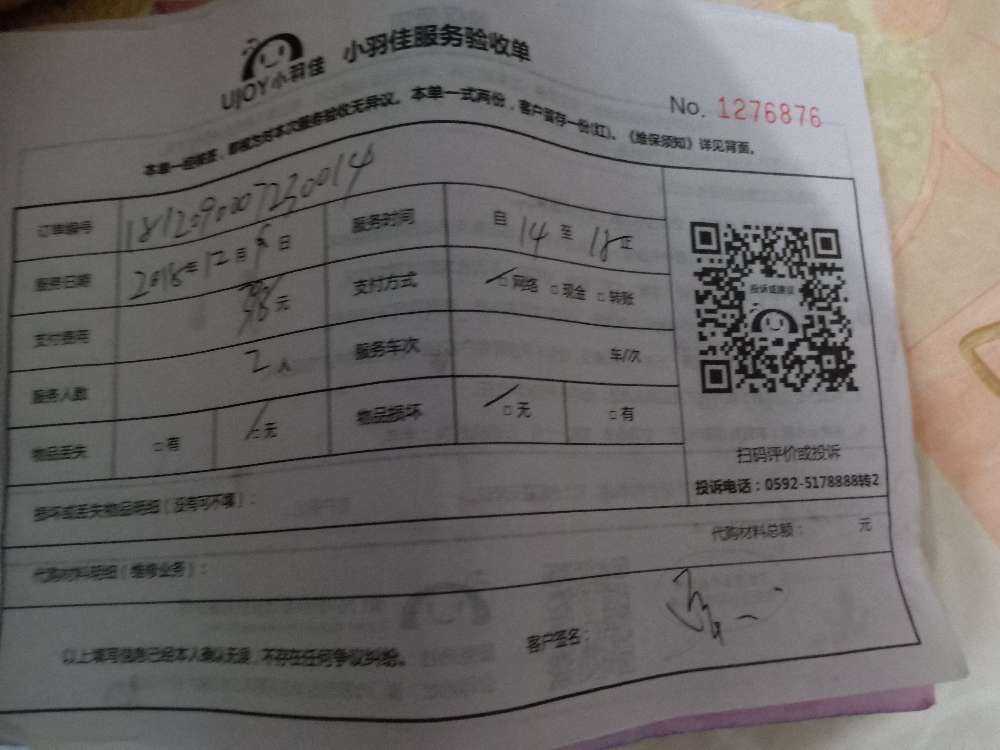 UJOY小羽佳 小羽佳服务验收单
No. 1276876
本单一经签字，即视为对本次服务验收无异议。本单一式两份，客户留存一份(红)。《维保须知》详见背面。
订单编号 1812090007230014 服务时间 自 14 至 18 止
服务日期 2018年12月9日 支付方式 □网络 □现金 □转账
支付费用 元
服务人数 2人 服务车次 车/次
物品丢失 □有 □无 物品损坏 □无 □有
投诉或建议
扫码评价或投诉
投诉电话：0592-5178888转2
损坏或丢失物品明细（没有可不填）：
代购材料明细（维修业务）： 代购材料总额： 元
以上填写信息已经本人确认无误，不存在任何争议纠纷。 客户签名：